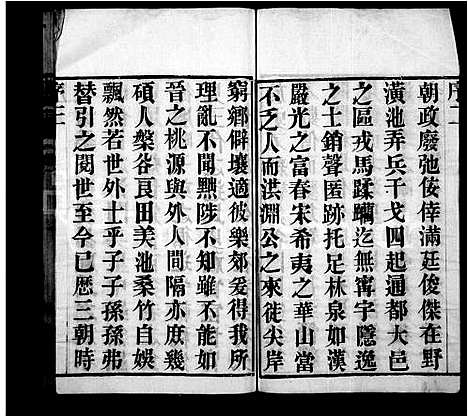 序二
朝政廢弛倿倖滿廷俊傑在野
潢池弄兵干戈四起通都大邑
之區戎馬蹂躪迄無寧宇隱逸
之士銷聲匿跡托足林泉如漢
嚴光之富春宋希夷之華山當
不乏人而洪淵公之來徙尖岸
窮鄉僻壤適彼樂郊爰得我所
理亂不聞黜陟不知雖不能如
晉之桃源與外人間隔亦庶幾
碩人槃谷良田美池桑竹自娛
飄然若世外士乎子子孫孫弗
替引之閱世至今已歷三朝時
序三